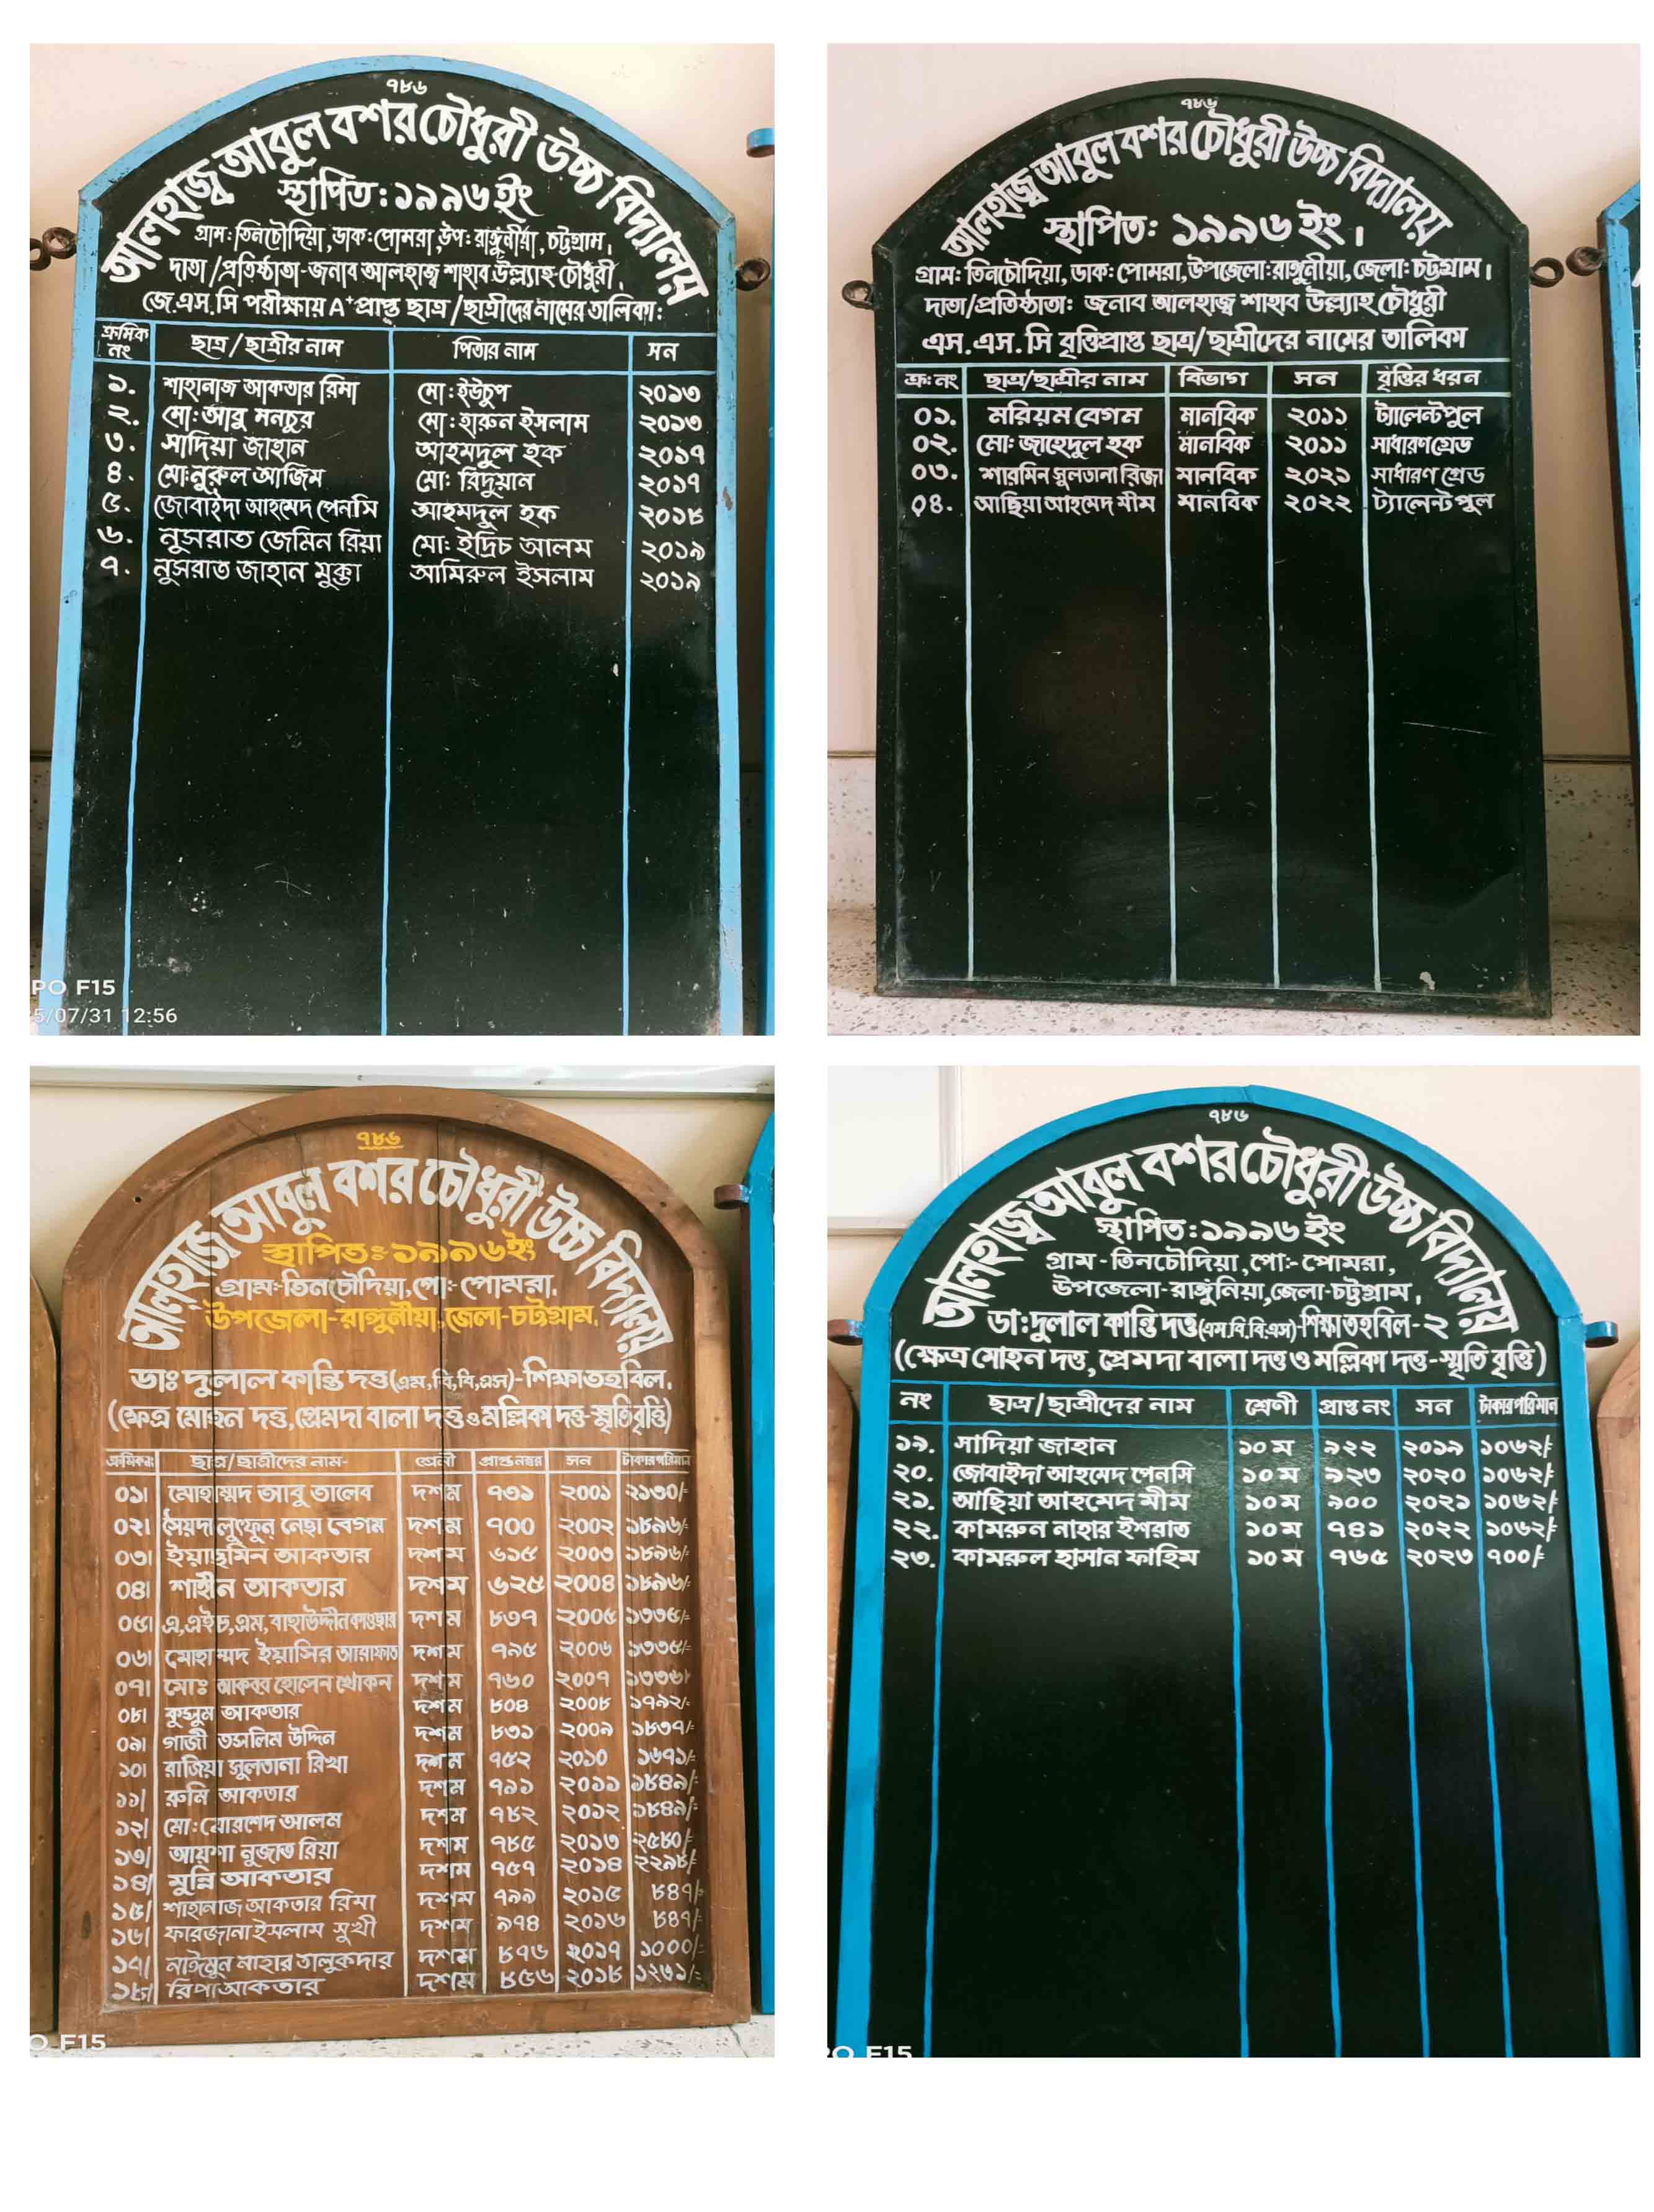 ৭৮৬
আলহাজ্ব আবুল বশর চৌধুরী উচ্চ বিদ্যালয়
স্থাপিত: ১৯৯৬ ইং
গ্রাম: তিনচৌদিয়া, ডাক: পোমরা, উপ: রাঙ্গুনীয়া, চট্টগ্রাম।
দাতা/প্রতিষ্ঠাতা-জনাব আলহাজ্ব শাহাব উল্ল্যাহ চৌধুরী।
জে.এস.সি পরীক্ষায় A+ প্রাপ্ত ছাত্র/ছাত্রীদের নামের তালিকা:
ক্রমিক নং ছাত্র/ছাত্রীর নাম পিতার নাম সন
১. শাহানাজ আকতার রিমা মো: ইউচুপ ২০১৩
২. মো: আবু মনচুর মো: হারুন ইসলাম ২০১৩
৩. সাদিয়া জাহান আহমদুল হক ২০১৭
৪. মো: নুরুল আজিম মো: রিদুয়ান ২০১৭
৫. জোবাইদা আহমেদ পেনসি আহমদুল হক ২০১৮
৬. নুসরাত জেমিন রিয়া মো: ইদ্রিচ আলম ২০১৯
৭. নুসরাত জাহান মুক্তা আমিরুল ইসলাম ২০১৯
PO F15
5/07/31 12:56
৭৮৬
আলহাজ্ব আবুল বশর চৌধুরী উচ্চ বিদ্যালয়
স্থাপিত: ১৯৯৬ ইং।
গ্রাম: তিনচৌদিয়া, ডাক: পোমরা, উপজেলা: রাঙ্গুনীয়া, জেলা: চট্টগ্রাম।
দাতা/প্রতিষ্ঠাতা: জনাব আলহাজ্ব শাহাব উল্ল্যাহ চৌধুরী
এস.এস.সি বৃত্তিপ্রাপ্ত ছাত্র/ছাত্রীদের নামের তালিকা
ক্র: নং ছাত্র/ছাত্রীর নাম বিভাগ সন বৃত্তির ধরন
০১. মরিয়ম বেগম মানবিক ২০১১ ট্যালেন্টপুল
০২. মো: জাহেদুল হক মানবিক ২০১১ সাধারণ গ্রেড
০৩. শারমিন সুলতানা রিজা মানবিক ২০২১ সাধারণ গ্রেড
০৪. আছিয়া আহমেদ মীম মানবিক ২০২২ ট্যালেন্টপুল
৭৮৬
আলহাজ্ব আবুল বশর চৌধুরী উচ্চ বিদ্যালয়
স্থাপিত: ১৯৯৬ ইং
গ্রাম:-তিনচৌদিয়া, পো:- পোমরা,
উপজেলা-রাঙ্গুনীয়া, জেলা-চট্টগ্রাম।
ডাঃ দুলাল কান্তি দত্ত (এম,বি,বি,এস)-শিক্ষা তহবিল।
(ক্ষেত্র মোহন দত্ত, প্রেমদা বালা দত্ত ও মল্লিকা দত্ত-স্মৃতি বৃত্তি)
ক্রমিক নং ছাত্র/ছাত্রীদের নাম- শ্রেনী প্রাপ্ত নম্বর সন টাকার পরিমান
০১। মোহাম্মদ আবু তালেব দশম ৭৩১ ২০০১ ২১৩০/
০২। সৈয়দা লুৎফুন্ নেছা বেগম দশম ৭০০ ২০০২ ১৮৯৬/
০৩। ইয়াছমিন আকতার দশম ৬১৫ ২০০৩ ১৮৯৬/
০৪। শাহীন আকতার দশম ৬২৫ ২০০৪ ১৮৯৬/=
০৫। এ,এইচ,এম, বাহাউদ্দীন কাওছার দশম ৮৩৭ ২০০৫ ১৩৩৫/=
০৬। মোহাম্মদ ইয়াসির আরাফাত দশম ৭৯৫ ২০০৬ ১৩৩৫/=
০৭। মোঃ আকবর হোসেন খোকন দশম ৭৬০ ২০০৭ ১৩৩৬/
০৮। কুসুম আকতার দশম ৮০৪ ২০০৮ ১৭৯২/=
০৯। গাজী তসলিম উদ্দিন দশম ৮৩১ ২০০৯ ১৮৩৭/=
১০। রাজিয়া সুলতানা রিখা দশম ৭৫২ ২০১০ ১৬৭১/=
১১। রুনি আকতার দশম ৭১১ ২০১১ ১৮৪৯/=
১২। মো: মোরশেদ আলম দশম ৭৮২ ২০১২ ১৮৪৯/=
১৩। আয়শা নুজাত রিয়া দশম ৭৮৫ ২০১৩ ২৫৮০/
১৪। মুন্নি আকতার দশম ৭৫৭ ২০১৪ ২২৯৮/
১৫। শাহানাজ আকতার রিমা দশম ৭৯৯ ২০১৫ ৮৪৭/=
১৬। ফারজানা ইসলাম সুখী দশম ৯৭৪ ২০১৬ ৮৪৭/=
১৭। নাঈমুন নাহার তালুকদার দশম ৮৭৬ ২০১৭ ১০০০/=
১৮। রিপা আকতার দশম ৮৫৬ ২০১৮ ১২৩১/=
O F15
৭৮৬
আলহাজ্ব আবুল বশর চৌধুরী উচ্চ বিদ্যালয়
স্থাপিত: ১৯৯৬ ইং
গ্রাম - তিনচৌদিয়া, পো:- পোমরা,
উপজেলা-রাঙ্গুনিয়া, জেলা-চট্টগ্রাম,
ডা: দুলাল কান্তি দত্ত (এম.বি.বি.এস)-শিক্ষা তহবিল-২
(ক্ষেত্র মোহন দত্ত, প্রেমদা বালা দত্ত ও মল্লিকা দত্ত-স্মৃতি বৃত্তি)
নং ছাত্র/ছাত্রীদের নাম শ্রেণী প্রাপ্ত নং সন টাকার পরিমান
১৯. সাদিয়া জাহান ১০ম ৯২২ ২০১৯ ১০৬২/=
২০. জোবাইদা আহমেদ পেনসি ১০ম ৯২৩ ২০২০ ১০৬২/=
২১. আছিয়া আহমেদ মীম ১০ম ৯০০ ২০২১ ১০৬২/=
২২. কামরুন নাহার ইশরাত ১০ম ৭৪১ ২০২২ ১০৬২/=
২৩. কামরুল হাসান ফাহিম ১০ম ৭৬৫ ২০২৩ ৭০০/=
PO F15